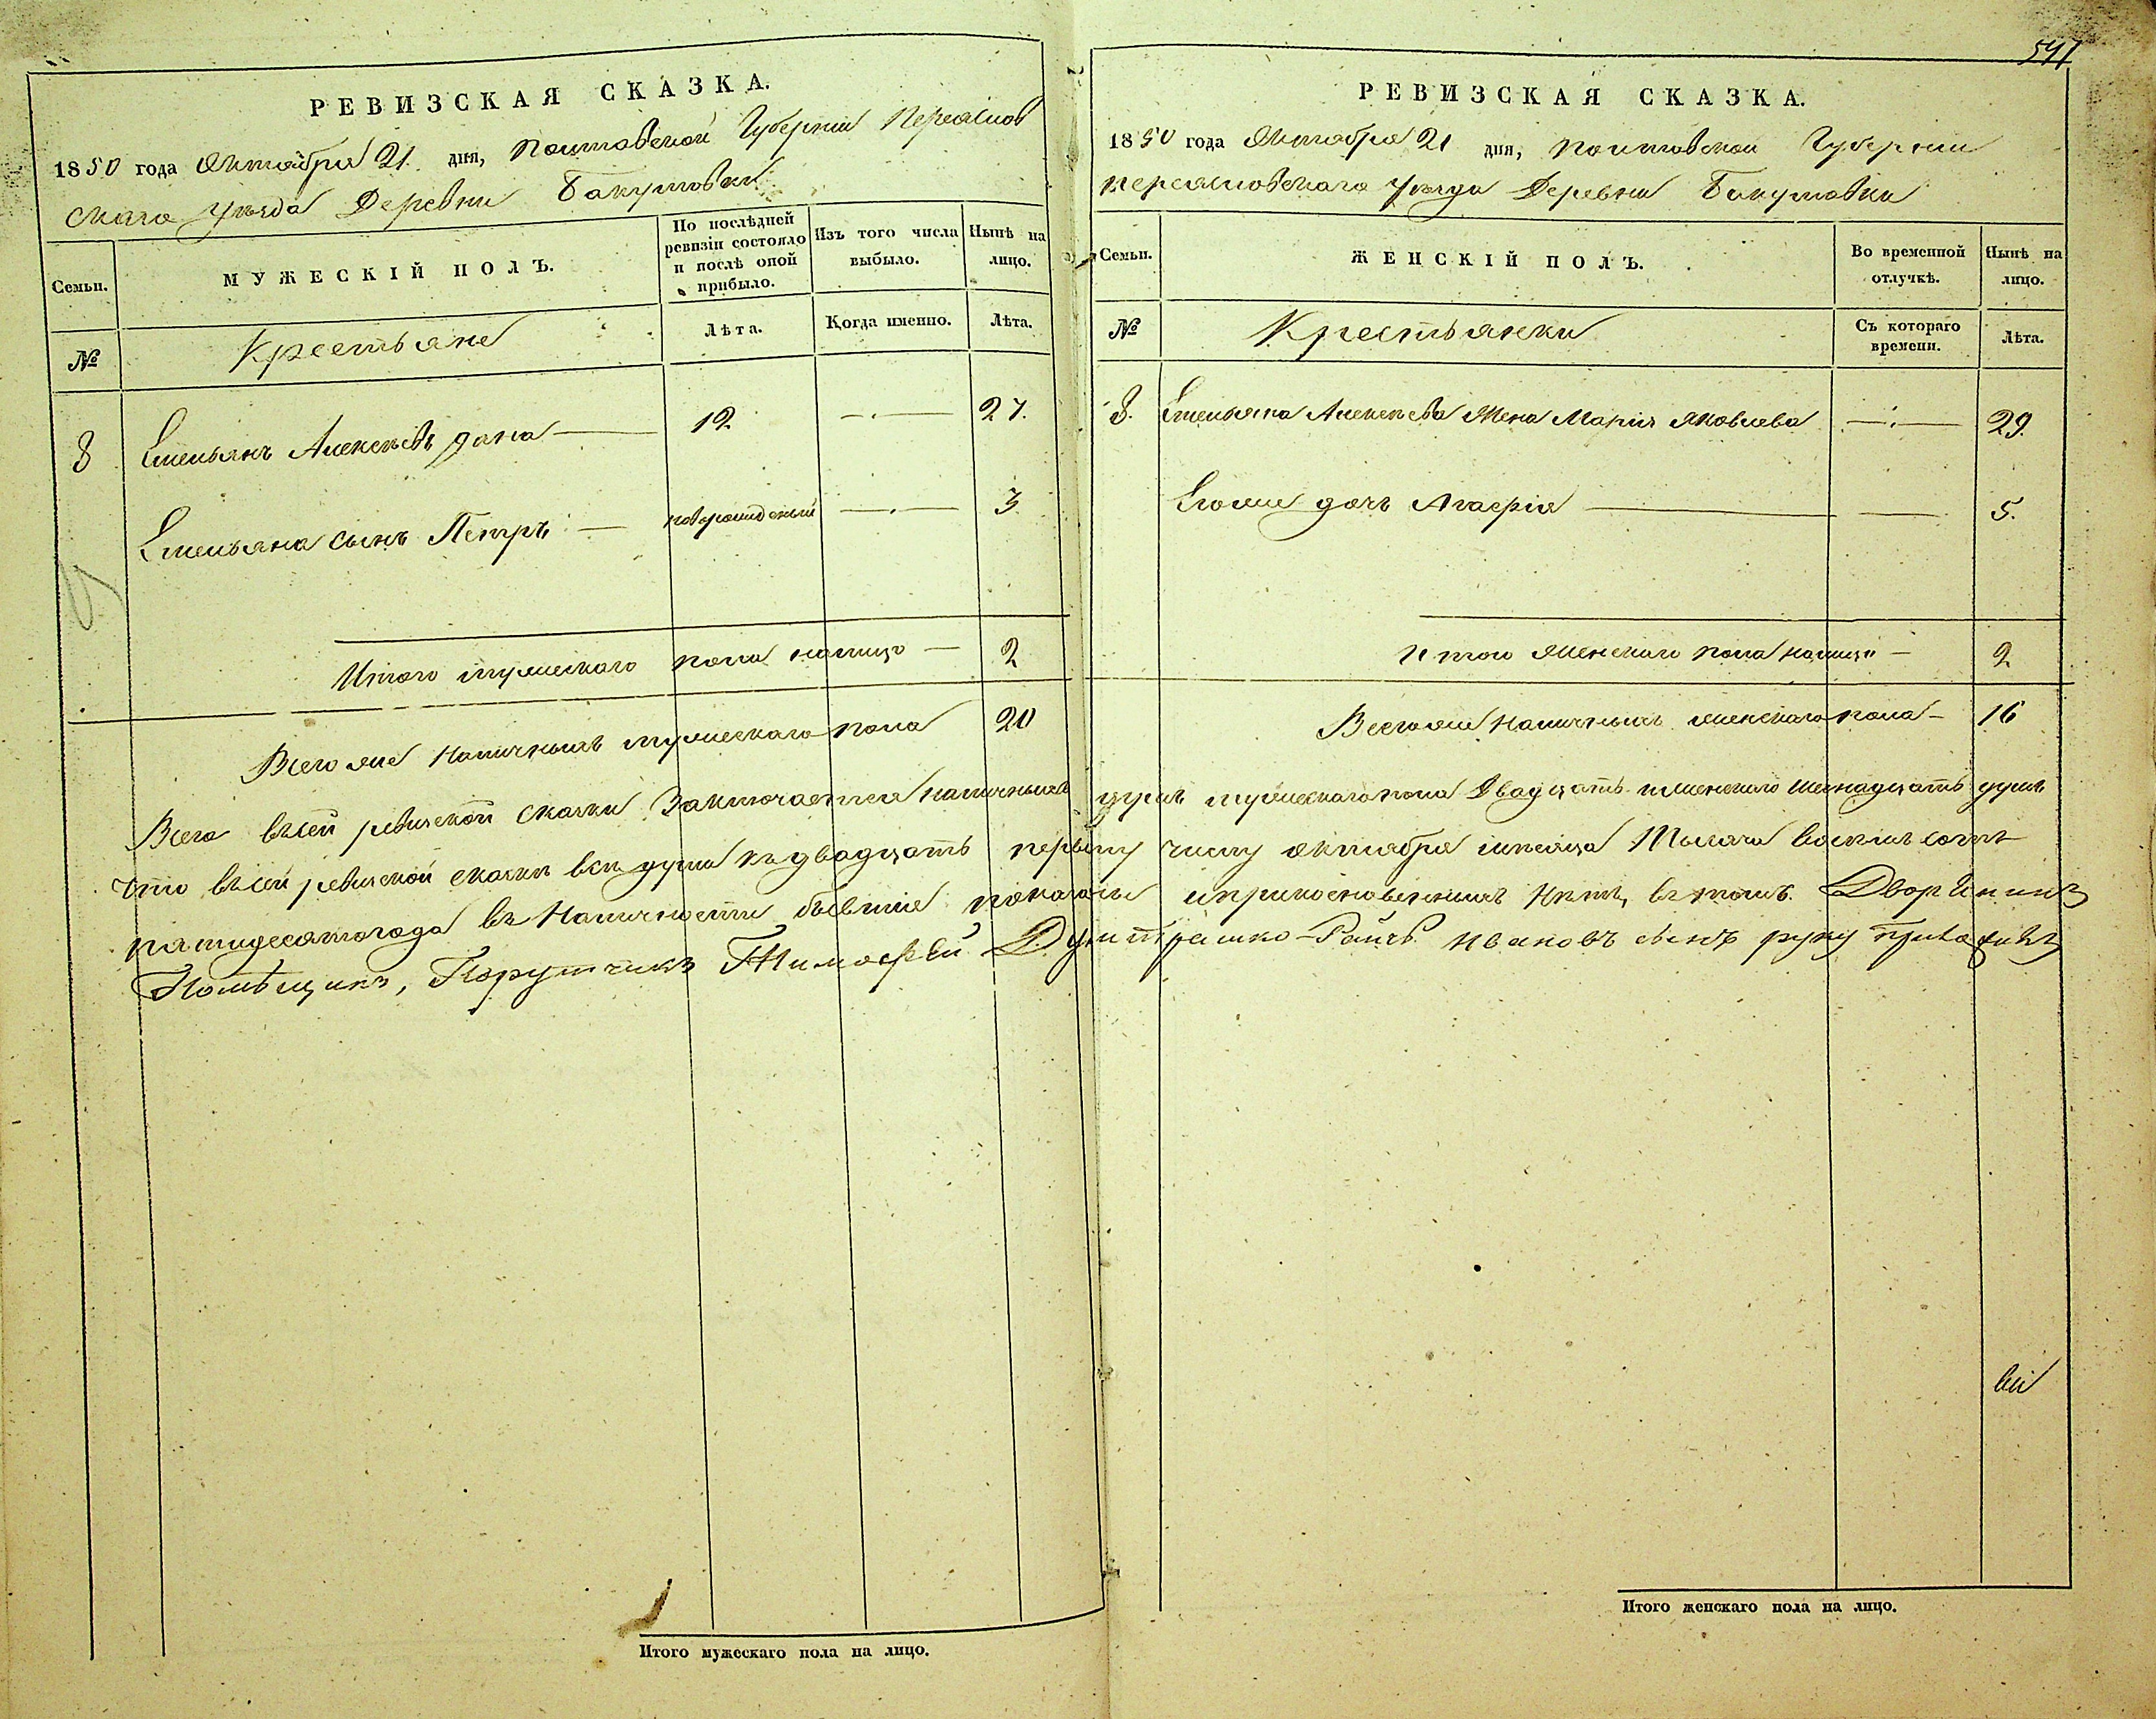 РЕВИЗСКАЯ СКАЗКА.
1850 года Октября 21. дня, Полтавской Губернии Переяслов
скаго Уѣзда Деревни Бакумовки
Семьи.
МУЖЕСКІЙ ПОЛЪ.
По послѣдней ревизіи состояло и послѣ оной прибыло.
Изъ того числа выбыло.
Нынѣ на лицо.
№
Крестьяне
Лѣта.
Когда именно.
Лѣта.
8 Емельянъ Алексѣевъ 12 — 27.
Емельяна сынъ Петръ — новорожденый — 3
Итого мужескаго пола налицо — 2
Всего же Наличныхъ мужескаго пола 20
541
РЕВИЗСКАЯ СКАЗКА.
1850 года Октября 21 дня, Полтавской Губернии
Переясловскаго Уѣзда Деревни Бакумовки
Семьи.
ЖЕНСКІЙ ПОЛЪ.
Во временной отлучкѣ.
Нынѣ на лицо.
№
Крестьянки
Съ котораго времени.
Лѣта.
8. Емельяна Алексѣева Жена Марія Яковлева — 29.
Егоже дочь Агафія — 5.
Итого женскаго пола налицо — 2
Всегоже Наличныхъ женскаго пола — 16
Всего въ сей ревизской сказки Заключается наличныхъ душъ мужескаго пола Двадцать и женскаго шеснадцать душъ
Что въ сей ревизской сказкѣ всѣ души къ двадцать первому числу октября мѣсяца Тысяча восемь сотъ
пятидесятого года въ Наличности бывшие показаны и прикосновенныхъ Нѣтъ, въ томъ. Дворянинъ
Помѣщикъ, Порутчикъ Тимофѣй Думитрашко-Райчъ Ивановъ сынъ руку приложилъ
Итого мужескаго пола на лицо.
Итого женскаго пола на лицо.